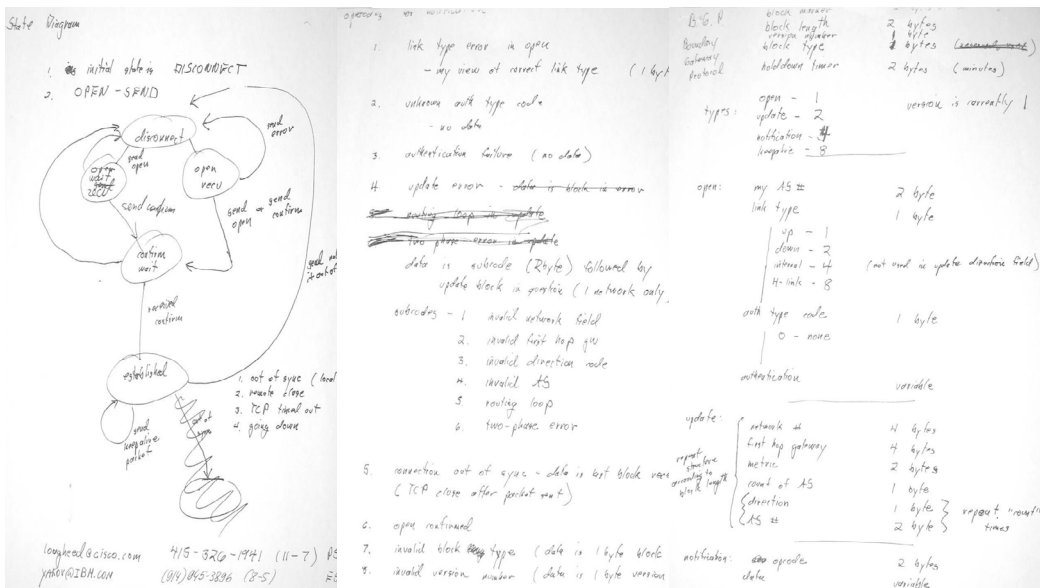 State Diagram
1. initial state is DISCONNECT
2. OPEN-SEND
disconnect
send error
send open
open
wait
open
recv
send confirm
send or send
open confirm
confirm
wait
received
confirm
established
1. out of sync (local
2. remote close
3. TCP timed out
4. going down
send
keepalive
packet
out of
sync
lougheed@cisco.com 415-326-1941 (11-7)
YAKOV@IBM.COM (914)945-3896 (8-5)
opcodes for notifications
1. link type error in open
- my view of correct link type (1 byt
2. unknown auth type code
- no data
3. authentication failure (no data)
4. update error - data is block in error
routing loop in update
two phase error in update
data is subcode (2byte) followed by
update block in question (1 network only
subcodes - 1 invalid network field
2. invalid first hop gw
3. invalid direction code
4. invalid AS
5. routing loop
6. two-phase error
5. connection out of sync - data is last block
(TCP close after packet sent)
6. open confirmed
7. invalid block type (data is 1 byte block
8. invalid version number (data is 1 byte version
B.G.P
Boundary
Gateway
Protocol
block marker
block length 2 bytes
version number 1 byte
block type bytes
holddown timer 2 bytes (minutes)
types: open - 1 version is currently 1
update - 2
notification - 4
keepalive - 8
open: my AS # 2 byte
link type 1 byte
up - 1
down - 2
internal - 4 (not used in update direction field)
H-link - 8
auth type code 1 byte
0 - none
authentication variable
update:
repeat
structure
according to
block length
network # 4 bytes
first hop gateway 4 bytes
metric 2 bytes
count of AS 1 byte
direction 1 byte
AS # 2 byte
repeat "count"
times
notification: opcode 2 bytes
data variable